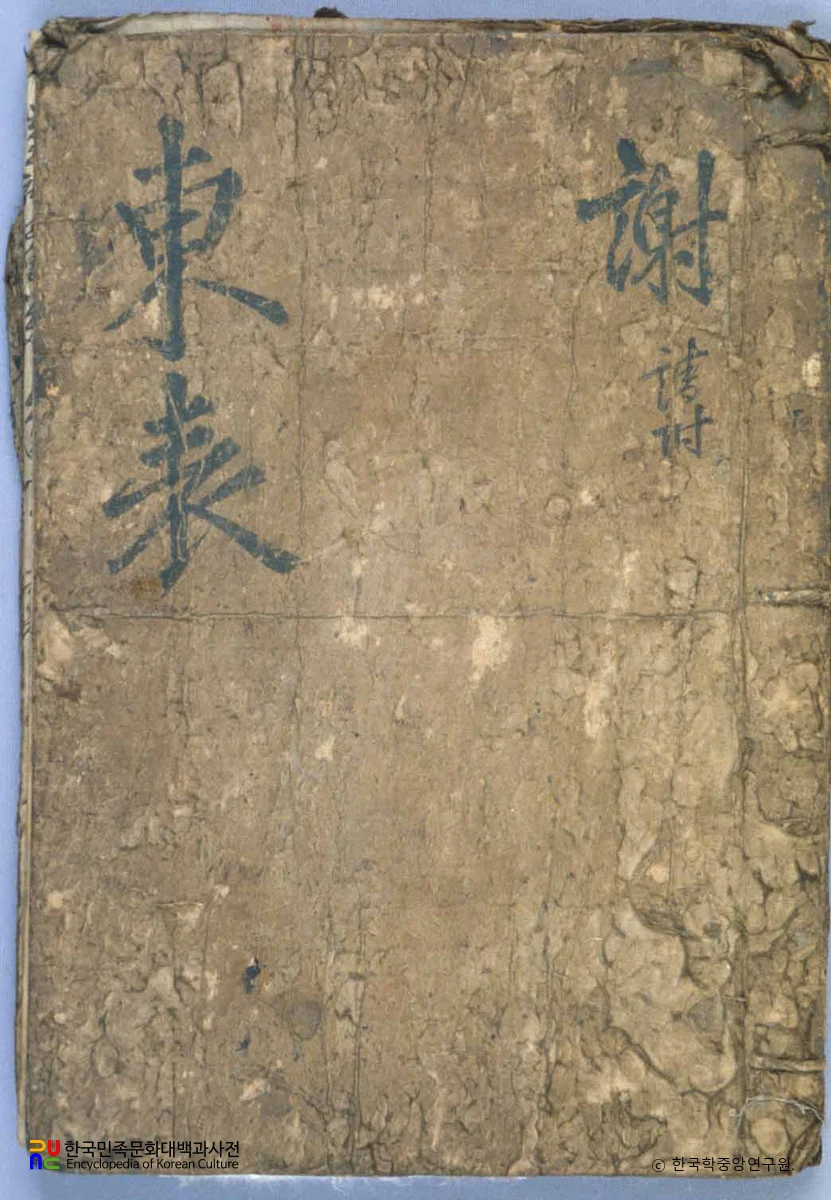 謝
請附
東表
한국민족문화대백과사전
Encyclopedia of Korean Culture
© 한국학중앙연구원